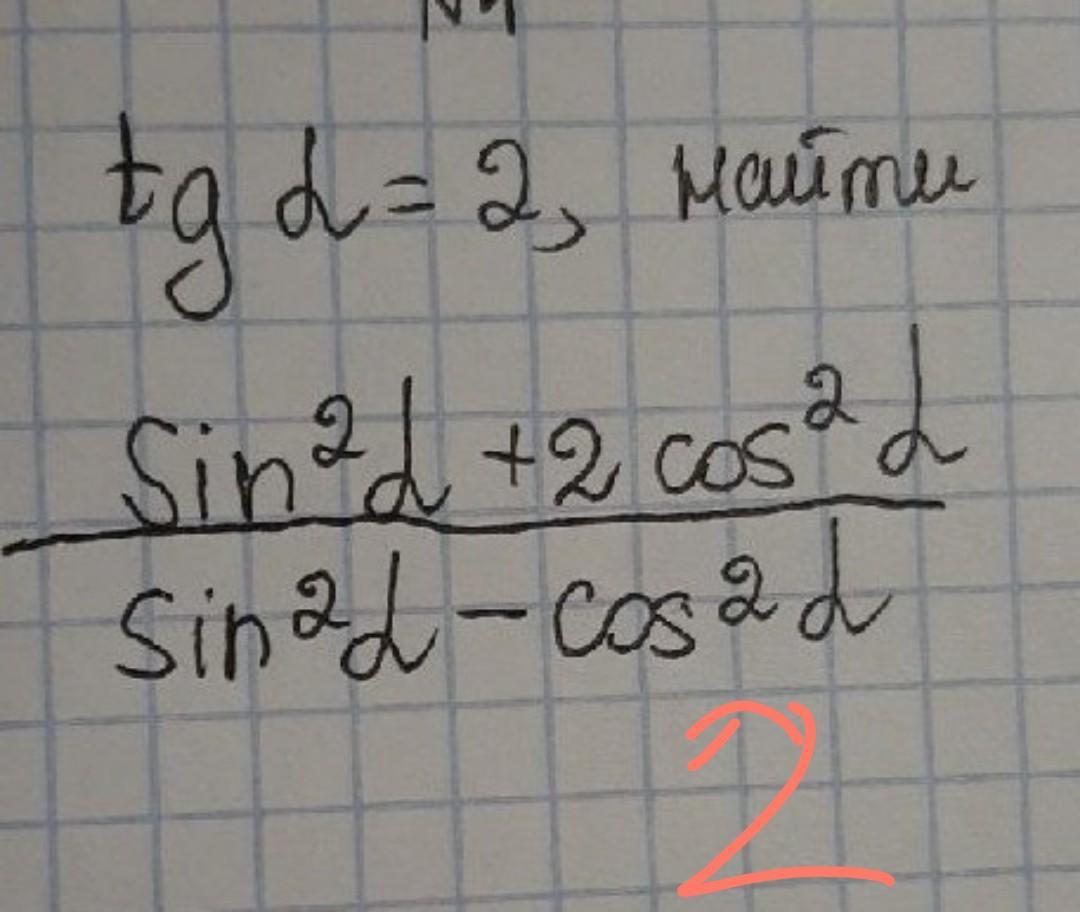 tg α = 2, найти
sin²α + 2 cos²α
sin²α − cos²α
2